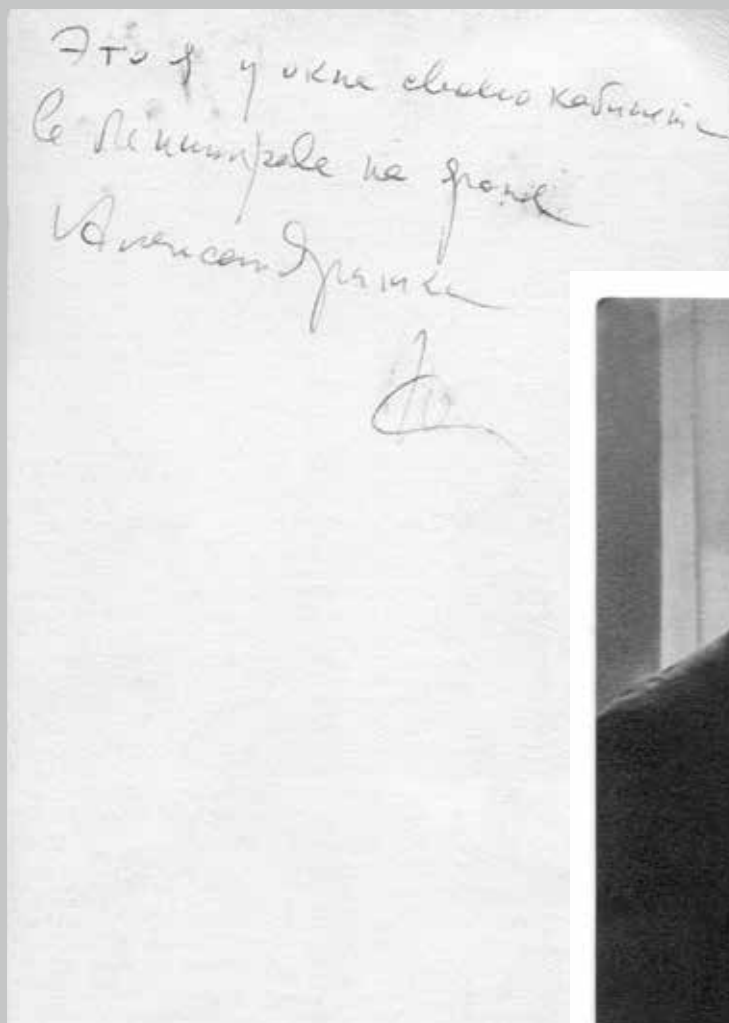 Это я у окна своего кабинета
в Ленинграде на фоне
Александринки